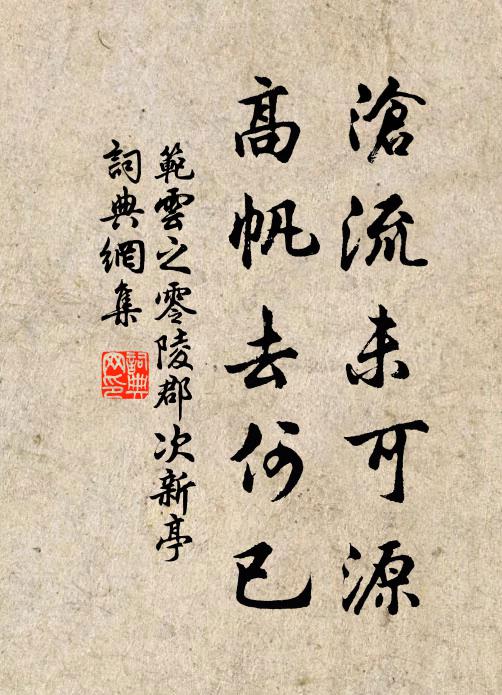 滄流未可源
高帆去何已
範雲之零陵郡次新亭
詞典網集
詞典
网印